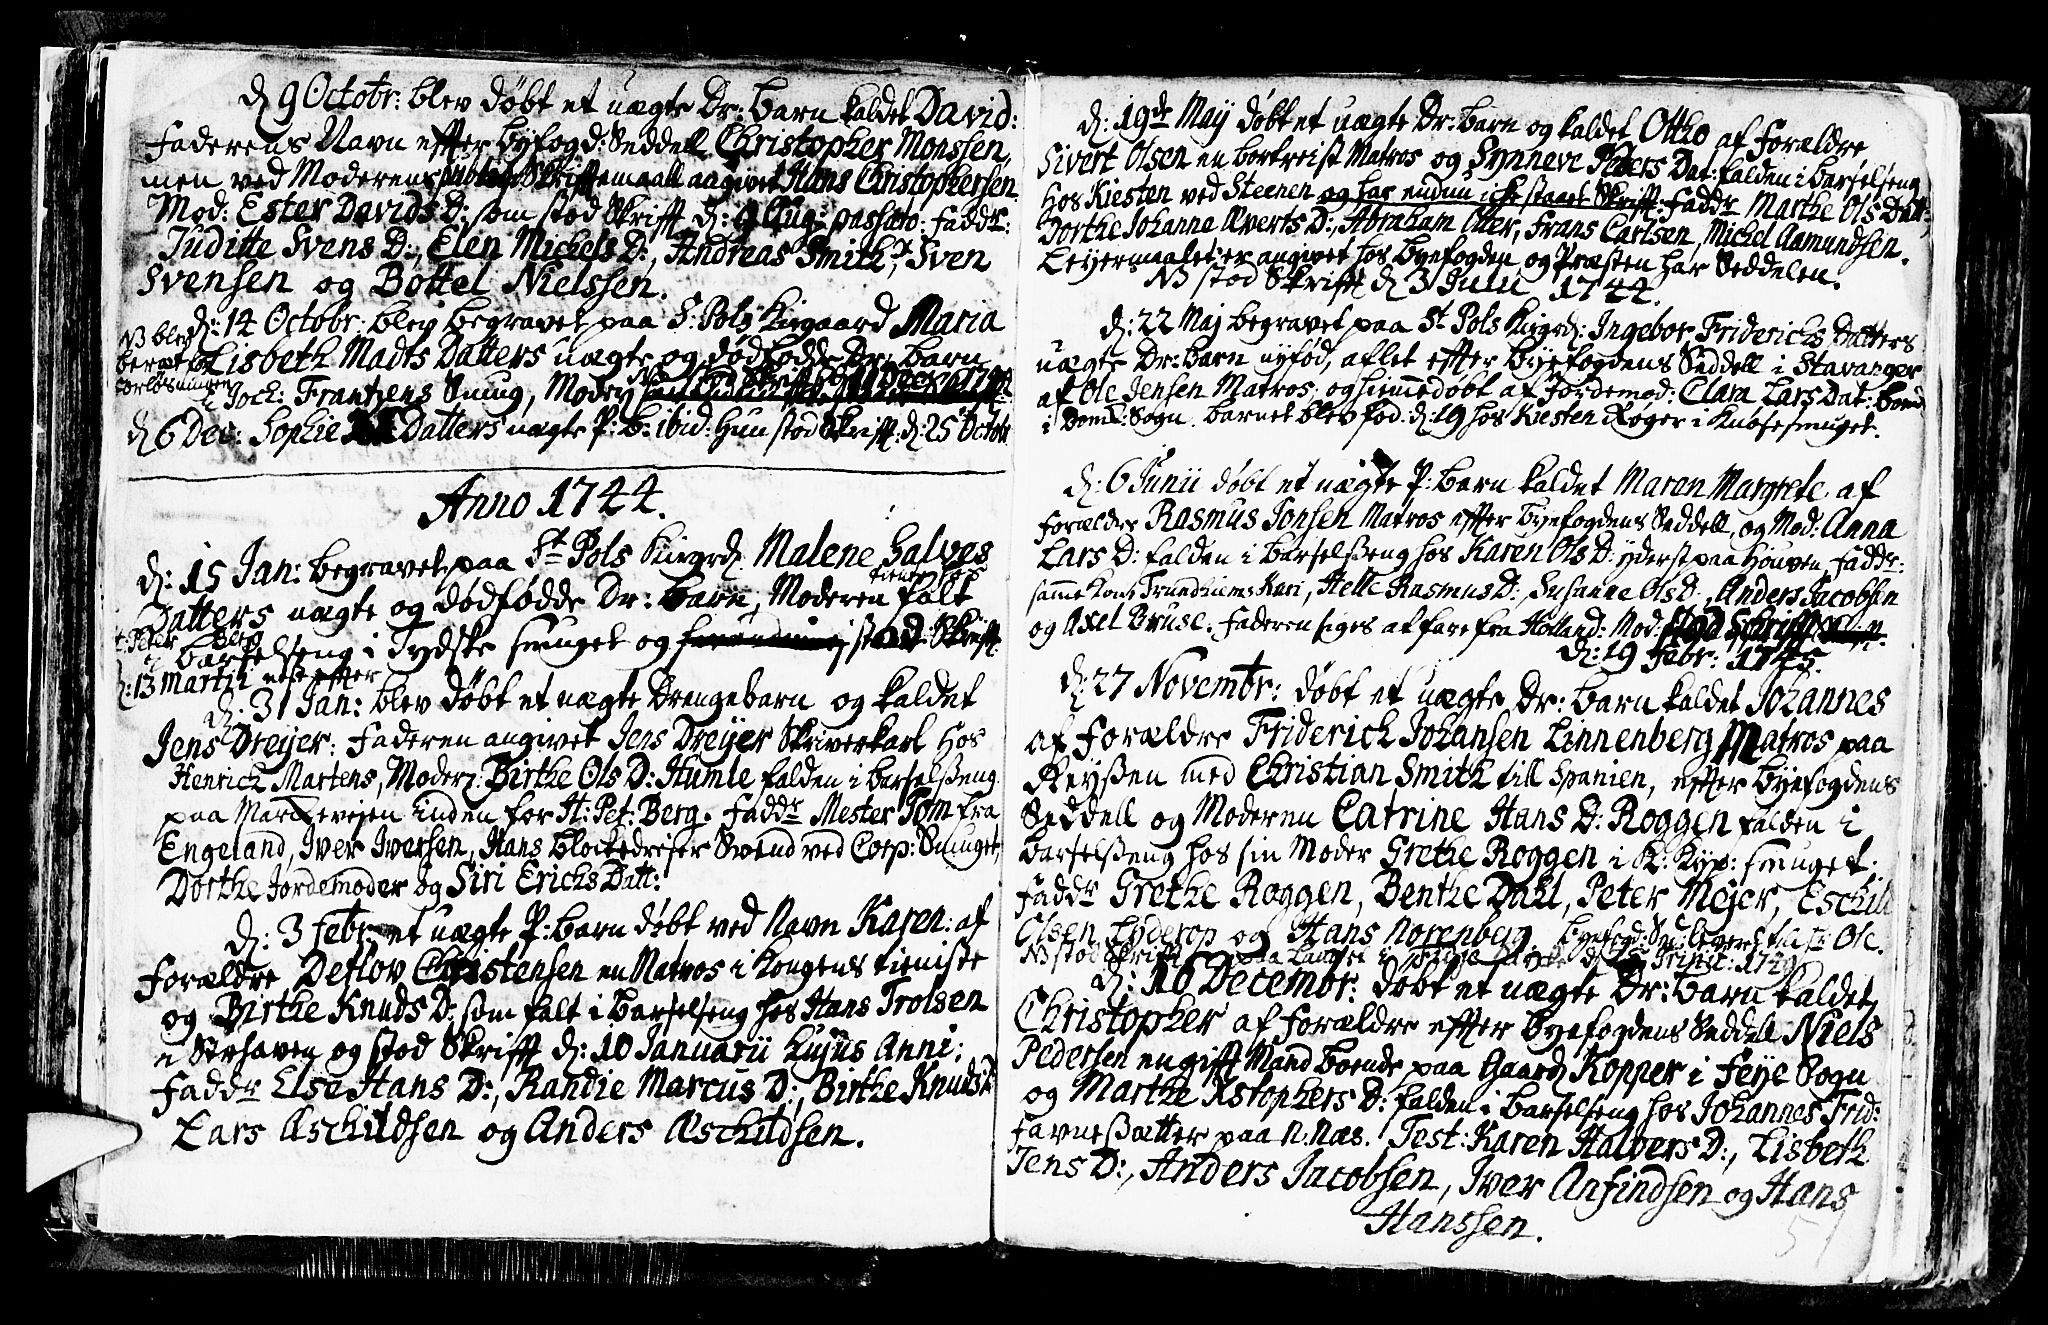 d. 9 Octobr: blev døbt et uægte Dr: barn kaldet David:
Faderens Navn effter byfogd: Seddell Christopher Monssen,
men ved Moderens Skriftemaall angivet Hans Christophersen
Mod: Ester Davids D: som stod Skrifft d: 9 Aug: passato: Faddr:
Juditte Svens D:, Elen Michels D:, Andreas Smith, Sven
Svensen og Bottel Nielssen.
d: 14 Octobr: blev begravet paa S: Pols Kirgaard Maria
Lisbeth Madts Datters uægte og dødfødde Dr: barn
NB blev
beræt for
forløsningen
i Joch: Frantzens Smug, Moder
d 6 Dec: Sophie Datters uægte P: B: ibid: Hun stod Skrifft: d: 25 Octobr
Anno 1744.
d: 15 Jan: begravet paa St Pols Kirgrd. Malene Halves
Datters uægte og dødfødde Dr: barn, Moderen tiener hos falt
t. Peter Berg
i barselseng i Tydske smuget og stod Skrifft
d: 13 Martii nest effter
d: 31 Jan: blev døbt et uægte Drengebarn og kaldet
Jens Dreyer: Faderen angivet Jens Dreyer Skriverkarl hos
Henrich Martens, Moder: Birthe Ols D: Humle falden i barselsseng
paa Markevejen inden for H: Pet: Berg. Faddr Mester Tom fra
Engeland, Iver Iversen, Hans Blockedreier Svend ved Corp: Smuget,
Dorthe Jordemoder og Siri Erichs Datt:
d: 3 Febr: et uægte P: barn døbt ved Navn Karen: af
Forældre Detlov Christensen en Matros i Kongens tieniste
og Birthe Knuds D: som falt i barselseng hos Hans Trolsen
i Serhaven og stod Skrifft d: 10 Januarii hujus Anni:
Faddr Else Hans D:, Randie Marcus D:, Birthe Knuds D:
Lars Aschildsen og Anders Aschildsen.
d: 19de Maij døbt et uægte Dr: barn og kaldet Otto af Forældre
Sivert Olsen en bortreist Matros og Synneve Peders Dat: falden i barselseng
hos Kiesten ved Steenen og har endnu icke staaet Skrifft. Faddr Marthe Ols Datt:,
Dorthe Johanne Everts D:, Abraham Otter, Frans Carlsen, Michel Aamundsen.
Leyermaalet er angivet hos Byefogden og Præsten har Seddelen.
NB stod Skrifft d 3 Julii 1744.
d: 22 Maj begravet paa St Pols Kirgrd: Ingebor Friderichs Datters
uægte Dr: barn nyfød, aflet effter byefogdens Seddell i Stavanger
af Ole Jensen Matros, og hiemmedøbt af Jordemod: Clara Lars Dat:
i Domk: Sogn. barnet blev fød: d: 19 hos Kiesten Roger i Knøsesmuget.
d: 6 Junii døbt et uægte P: barn kaldet Maren Margrete af
Forældre Rasmus Jonsen Matros effter byefogdens Seddell, og Mod: Anna
Lars D: falden i barselsseng hos Karen Ols D: yderst paa Houven, Faddr:
samme Kone Trundhiems Kari, Helle Rasmus D:, Susanne Ols D:, Anders Jacobsen
og Axel Bruse. Faderen siges at fare fra Holland: Mod: stod Schrifft
d: 19 Febr: 1745.
d: 27 Novembr: døbt et uægte Dr: barn kaldet Johannes
af Forældre Friderich Johansen Linnenberg Matros paa
Reyssen med Christian Smith till Spanien, effter byefogdens
Seddell og Moderen Catrine Hans D: Roggen falden i
barselsseng hos sin Moder Grethe Roggen i K: Kyp: smuget.
Faddr Grethe Roggen, Benthe Dahl, Peter Mejer, Eschild
Olsen Lyderop og Hans Norenberg. byefogd: Ole.
NB stod Skrifft
d: 16 Decembr: døbt et uægte Dr: barn kaldet
Christopher af Forældre effter byefogdens Seddell Niels
Pedersen en gifft Mand boende paa Gaard Kopper i Feye Sogn
og Marthe Xstophers D: falden i barselseng hos Johannes Frid:
Favnesætter paa N: Næs. Test: Karen Halvers D:, Lisbeth
Jens D:, Anders Jacobsen, Iver Anfindsen og Hans
Hanssen.